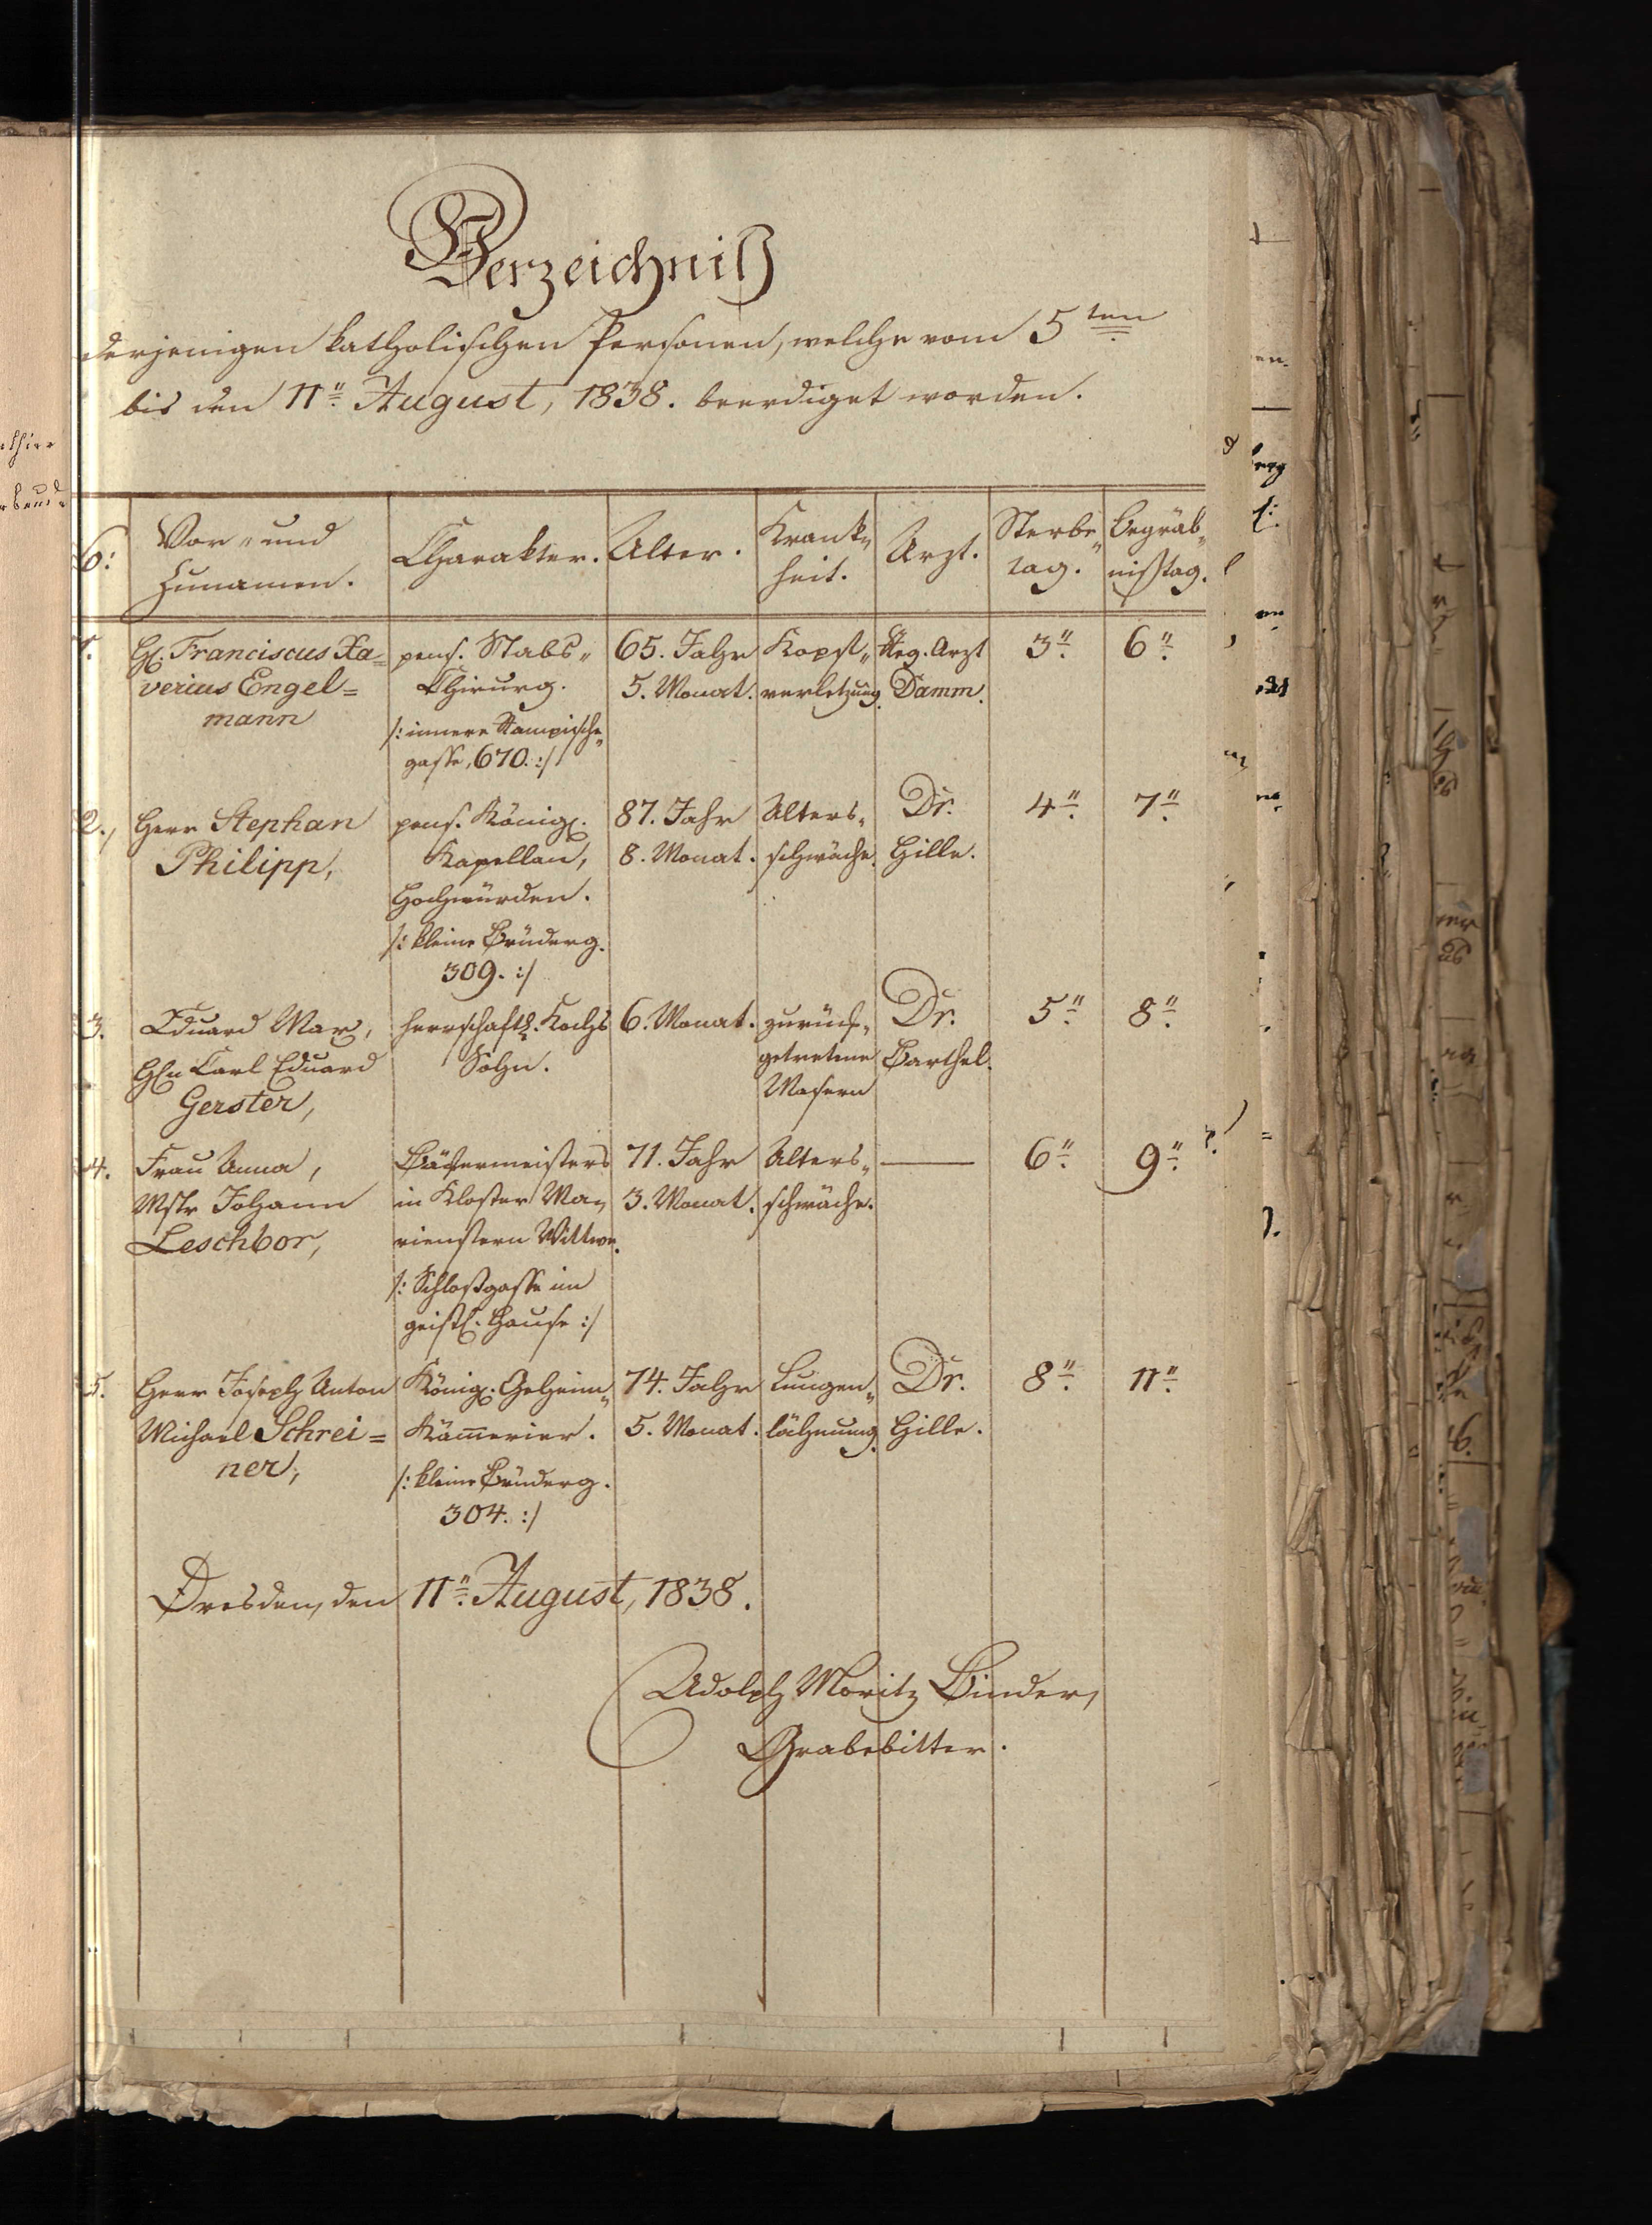 Verzeichniß
derjenigen katholischen Personen, welche vom 5ten
bis den 11ten August, 1838. beerdiget worden.
Vor- und
Zunamen.
Charakter.
Alter.
Krank-
heit.
Arzt.
Sterbe-
tag.
Begräb-
nißtag.
1.
H. Franciscus Xa-
verius Engel=
mann
pens. Stabs-
Chirurg.
/: innere Rampische-
gasse, 670. :/
65. Jahr
5. Monat.
Kopf-
verletzung.
Reg. Arzt
Damm.
3.
6.
2.,
Herr Stephan
Philipp,
pens. Königl.
Kapellan,
Hochwürden.
/: kleine Brüderg.
309. :/
87. Jahr
8. Monat.
Alters-
schwäche.
Dr.
Hille.
4.
7.
3.
Eduard Max,
Hrn Carl Eduard
Gerster,
herrschaftl. Kochs
Sohn.
6. Monat.
zurück-
getretene
Masern
Dr.
Barthel.
5.
8.
4.
Frau Anna,
Mstr Johann
Leschbor,
Bäckermeisters
in Kloster Ma-
rienstern Wittwe.
/: Schloßgasse im
geistl. Hause :/
71. Jahr
3. Monat.
Alters-
schwäche.
—
6.
9.
5.
Herr Joseph Anton
Michael Schrei=
ner,
Königl. Geheim-
Kämmerier.
/: kleine Brüderg.
304. :/
74. Jahr
5. Monat.
Lungen-
lähmung.
Dr.
Hille.
8.
11.
Dresden, den 11. August, 1838.
Adolph Moritz Binder,
Grabebitter.